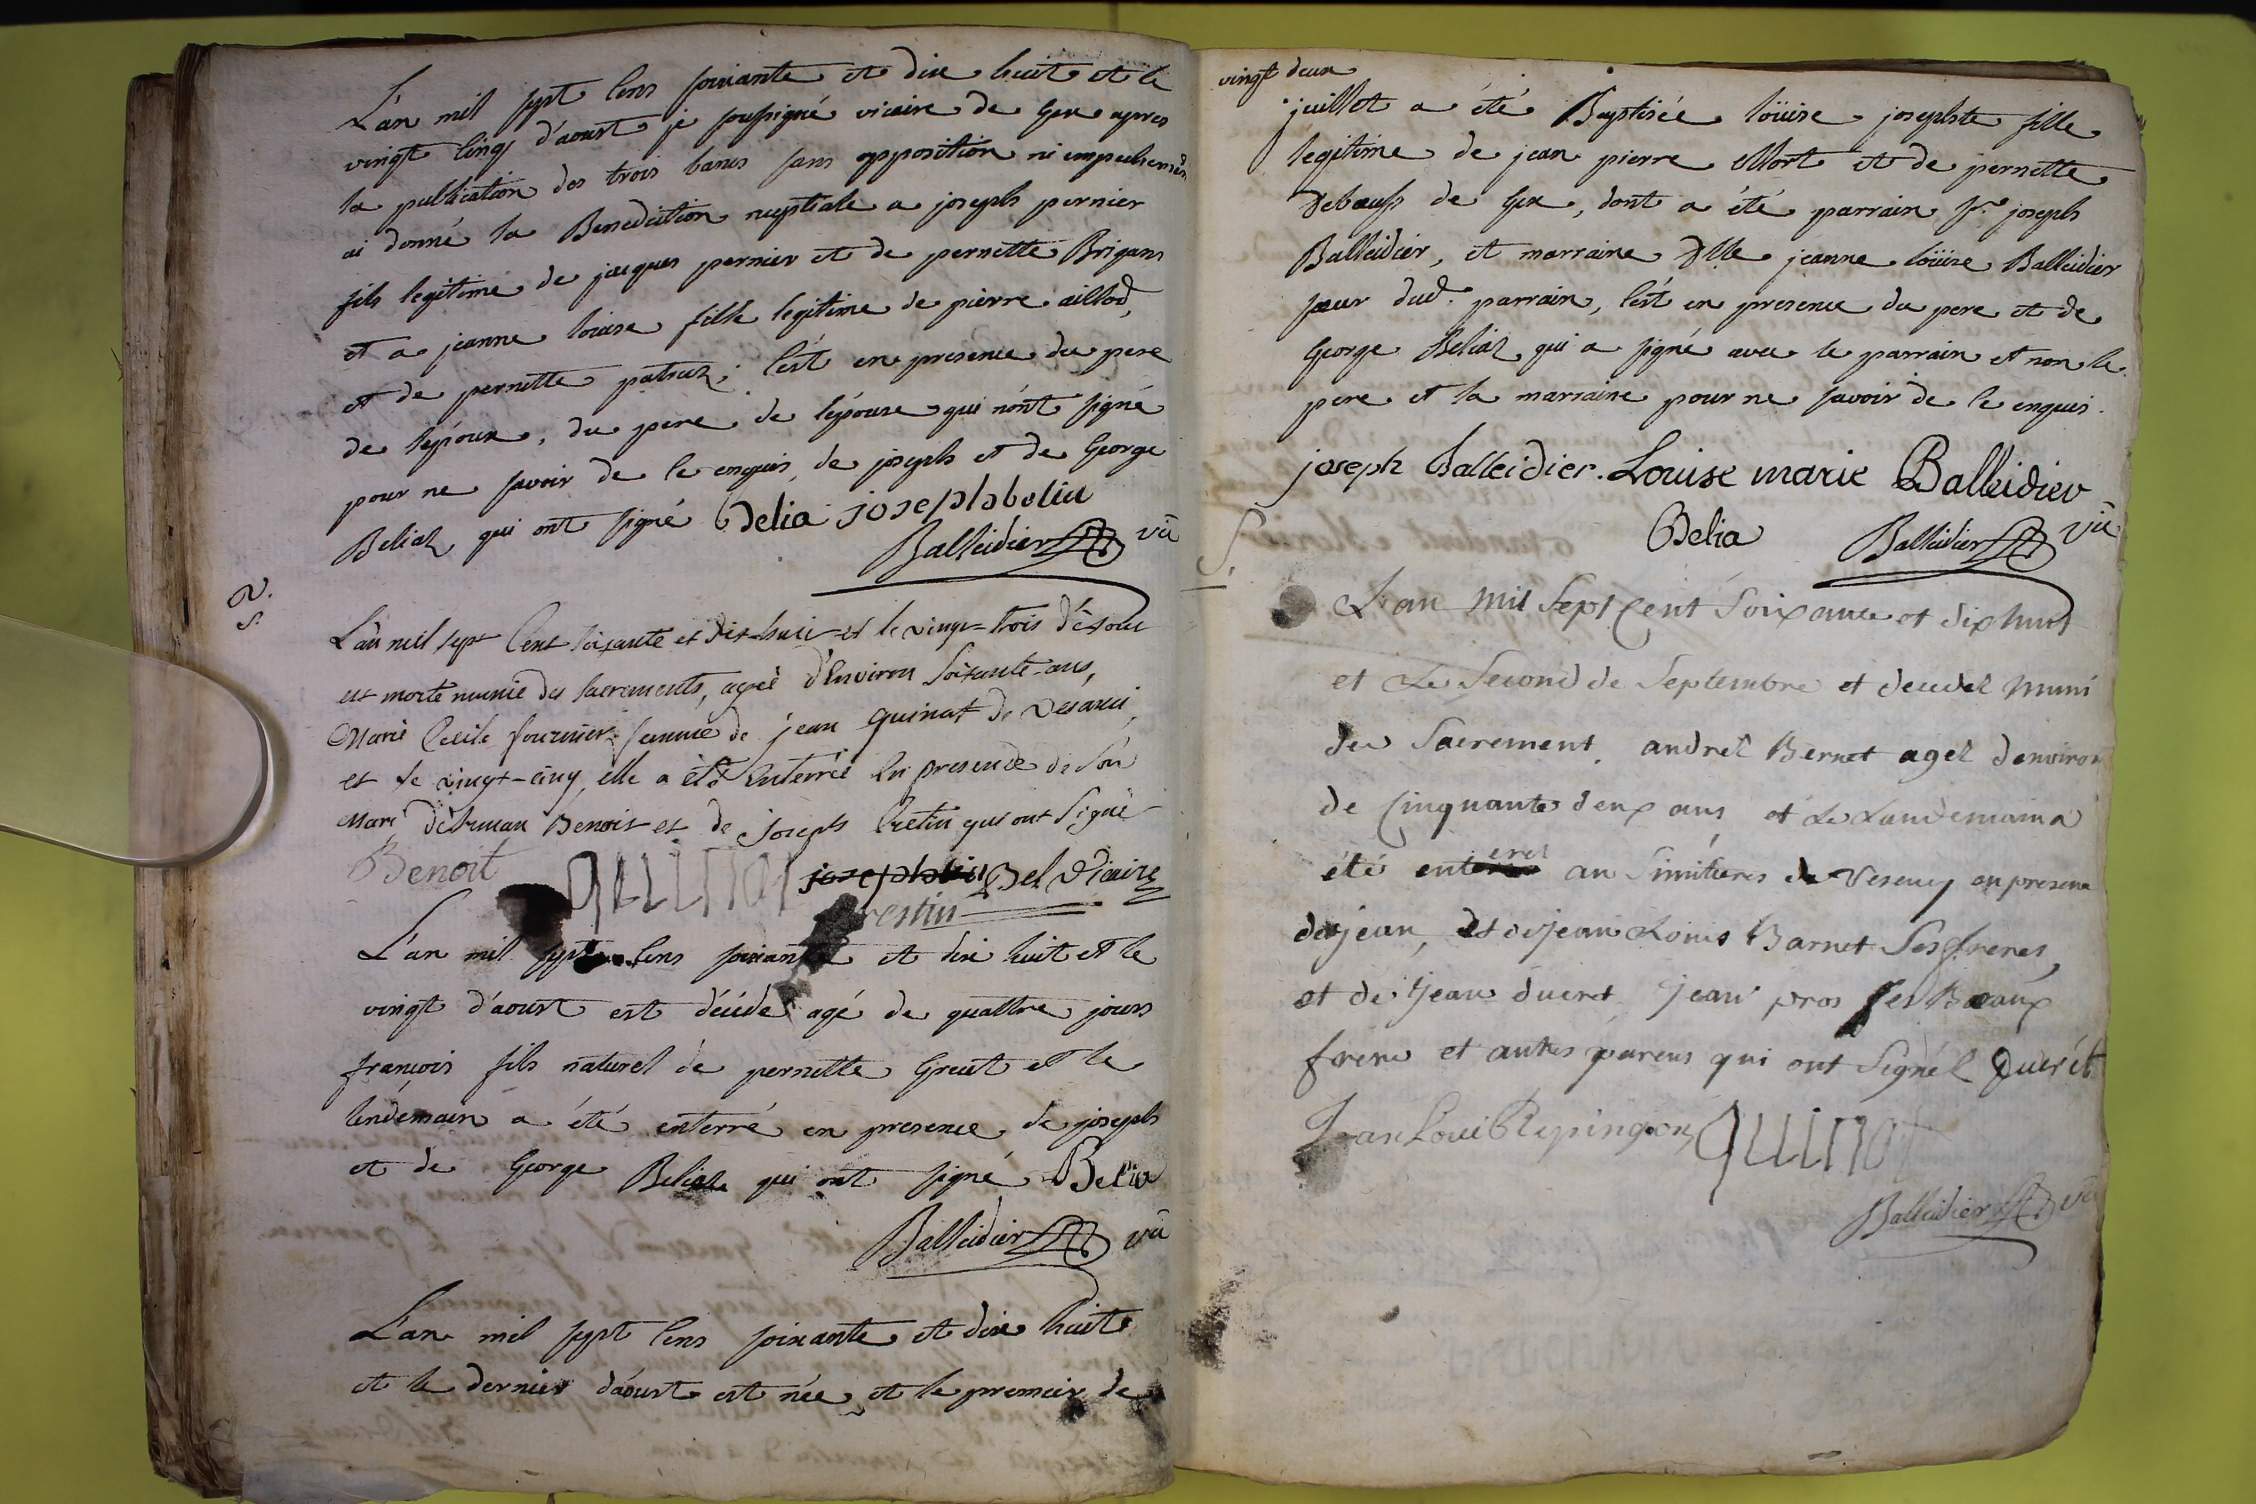 L'an mil sept cens soixante et dix huit et le
vingt cinq d'aoust je soussigné vicaire de Gex apres
la publication des trois bancs sans opposition ni empechement
ai donné la Benediction nuptiale a joseph pernier
fils legitime de jacques pernier et de pernette Brigans
et a jeanne louise fille legitime de pierre aillod,
et de pernette patraz; c'est en presence du pere
de l'epoux, du pere de l'epouse qui n'ont signé
pour ne savoir de ce enquis, de joseph et de George
Beliaz qui ont signé Belia joseph belia
Balleidier vic
N.
S.
L'an mil sept Cent soixante et dix-huit et le vingt-trois d'Aout
est morte munie des sacrements, agée d'Environ soixante ans,
Marie Cecile fournier femme de jean quinat de Vesanci,
et le vingt-cinq elle a été Enterrée En presence de son
Mari, de Benoit et de Joseph Cretin qui ont Signé
Benoit quinat joseph belia Bel Vicaire
crestin
L'an mil sept cens soixante et dix huit et le
vingt d'aoust est décédé agé de quattre jours
françois fils naturel de pernette Greut et le
lendemain a été enterré en presence de joseph
et de George Beliaz qui ont signé Belia
Balleidier vic
L'an mil sept cens soixante et dix huit
et le dernier d'aoust est née et le premeir de
vingt deux
juillet a été Baptisée loüise josephte fille
legitime de jean pierre Mort et de pernette
Debauss de Gex, dont a été parrain Sr. joseph
Balleidier, et marraine Dlle jeanne loüise Balleidier
soeur dud. parrain, c'est en presence du pere et de
George Beliaz qui a signé avec le parrain et non le
pere et la marraine pour ne savoir de ce enquis.
joseph Balleidier. Louise marie Balleidier
Belia Balleidier vic
S.
L'an mil Sept Cent Soixante et dixhuit
et Le Second de Septembre et decedel muni
des Sacrement, andrel Bernet agel denviron
de Cinquante deux ans et Le Landemain a
été enterel au Simitieres de Vesency en presene
de jean, et de jean Louis Barnet Ses freres,
et de Jean ducret jean pros ses Beaux
freres et autres parens qui ont Signél Ducrét
Jean Loui Repingon quinat
Balleidier vic